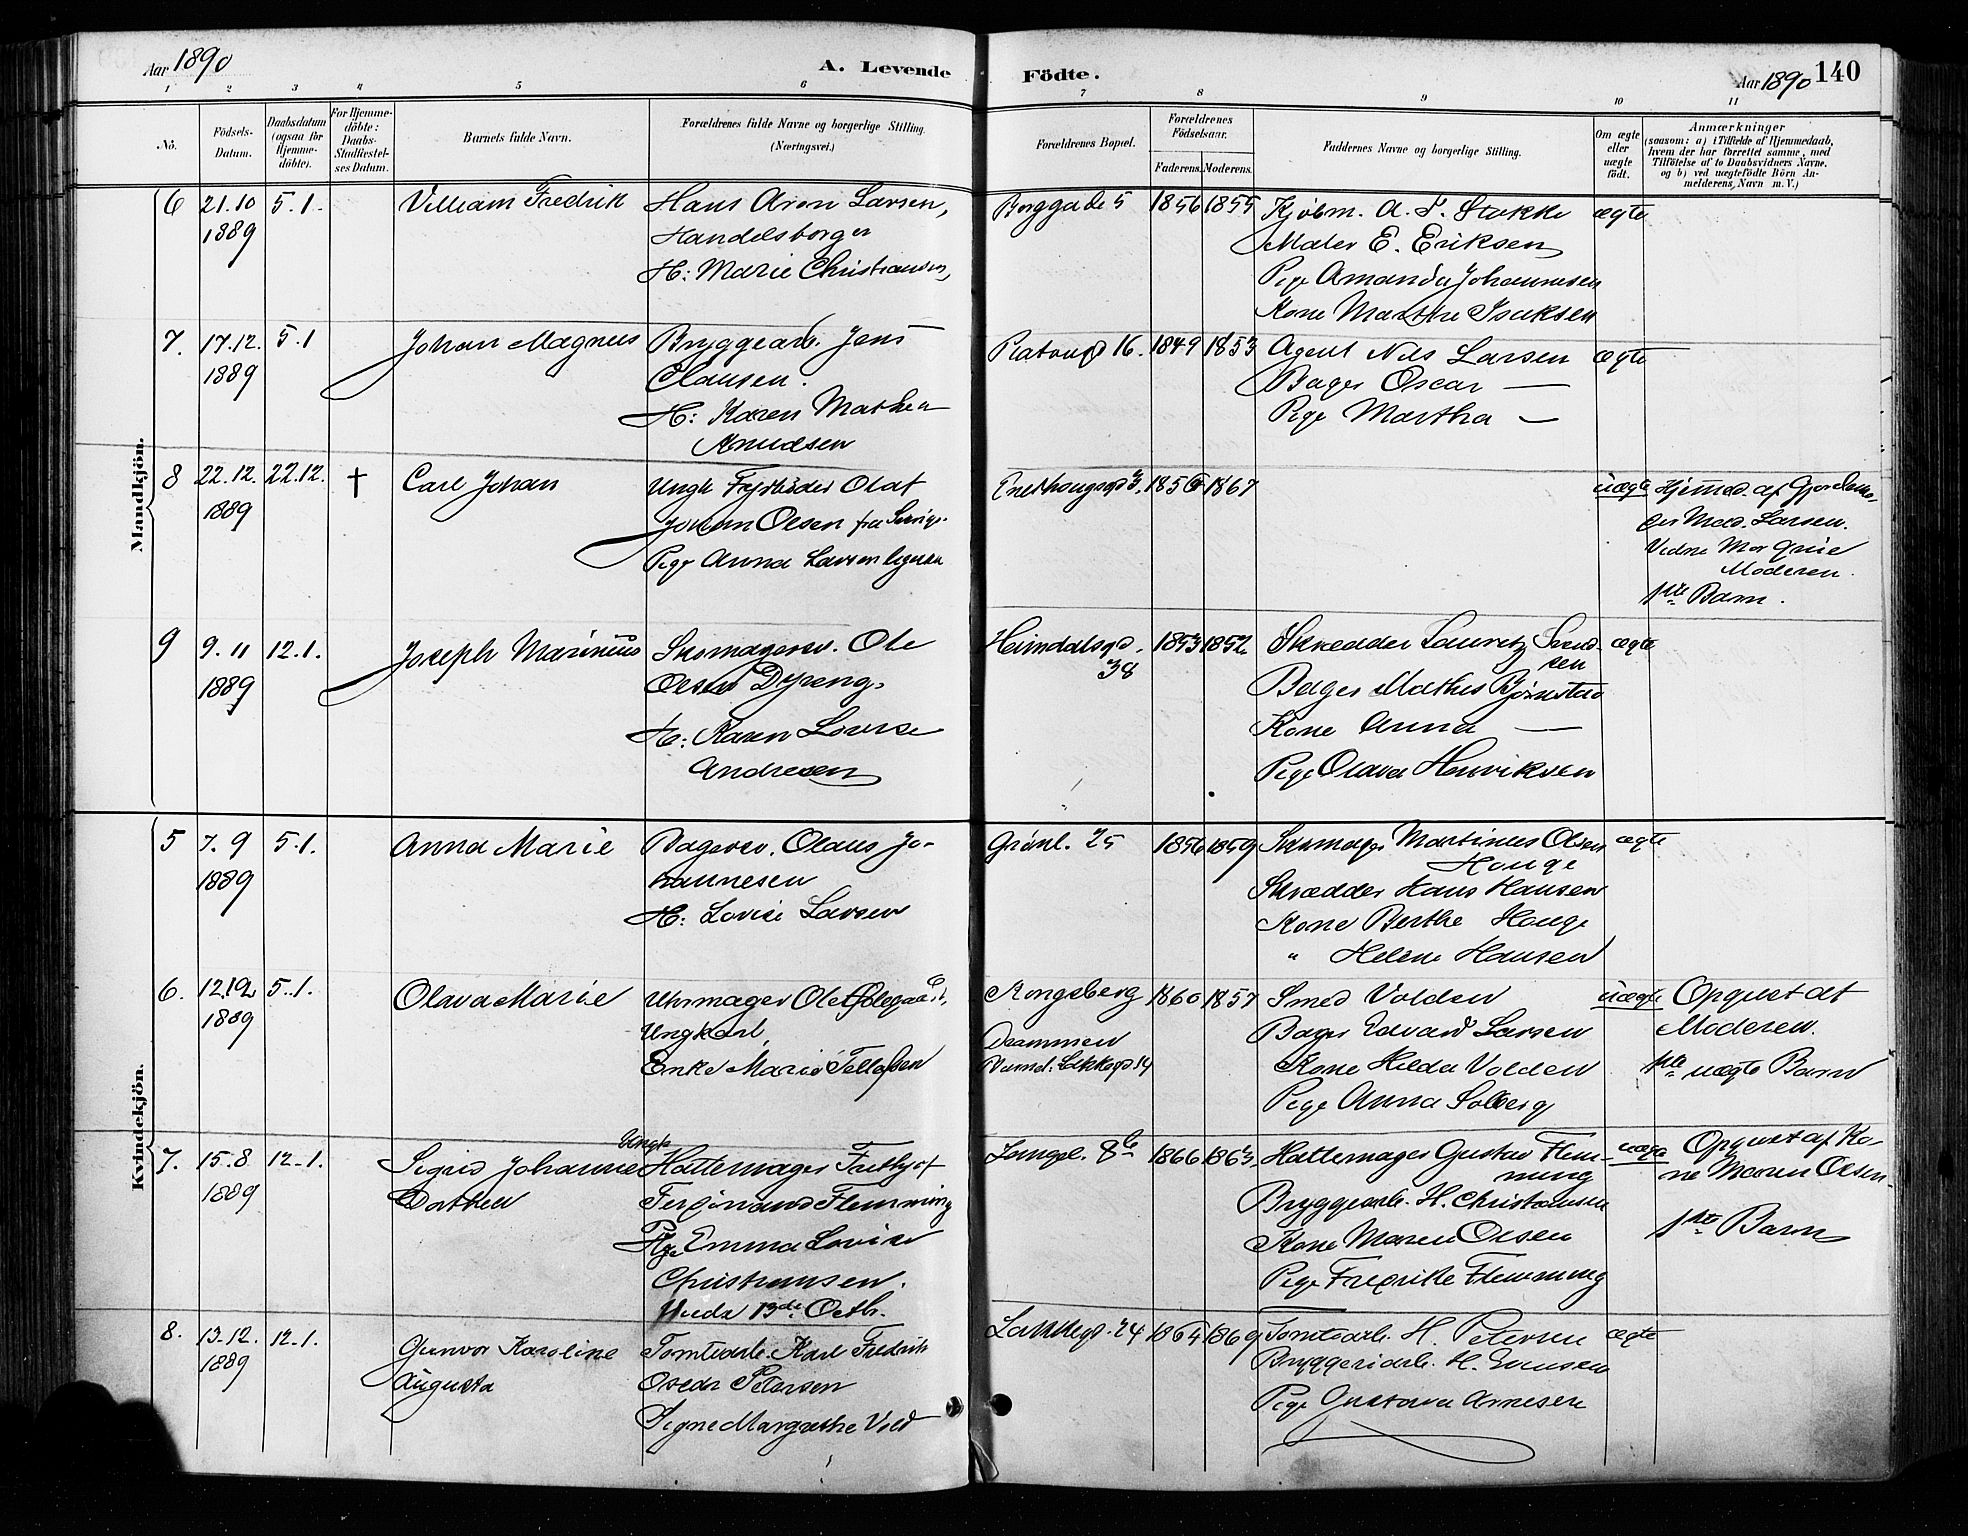 Aar 1890
A. Levende
Födte.
Aar 1890
140
1 2 3 4 5 6 7 8 9 10 11
No.
Födsels-
Datum.
Daabsdatum
(ogsaa for
Hjemme-
döbte).
For Hjemme-
döbte:
Daabs-
Stadfæstel-
ses Datum.
Barnets fulde Navn.
Forældrenes fulde Navne og borgerlige Stilling.
(Næringsvei.)
Forældrenes Bopæl.
Forældrenes
Födselsaar.
Faderens.
Moderens.
Faddernes Navne og borgerlige Stilling.
Om ægte
eller
uægte
födt.
Anmærkninger
(saasom: a) i Tilfælde af Hjemmedaab,
hvem der har forrettet samme, med
Tilföielse af to Daabsvidners Navne.
og b) ved uægtefödte Börn An-
melderens, Navn m. V.)
Mandkjön.
6
21.10
1889
5.1.
Villiam Fredrik
Hans Aron Larsen,
Handelsborger
H: Marie Christiansen,
Borggade 5
1856
1855
Kjøbm. A. P. Stokke
Maler E. Eriksen
Pige Amanda Johannesen
Kone Marthe Isaksen
ægte
7.
17.12.
1889
5.1
Johan Magnus
Bryggearb. Jens
Clausen.
H: Karen Mathea
Knudsen
Platougd 16.
1849
1853
Agent Nils Larsen
Bager Oscar —
Pige Martha —
ægte
8
22.12.
1889
22.12.
†
Carl Johan
Ungk Fyrbøder Olaf
Johan Olsen fra Sverige.
Pige Anna Larsen ligesaa
1867
uægte
Hjemmed. af Gjordemo-
der Mad. Larsen.
Moderen.
1ste Barn.
9
9.11
1889
12.1.
Joseph Marinius
Skomagersv. Ole
Olsen Dyreng.
H: Karen Lovise
Andresen
Heimdalsgd.
38
1853
1852
Skrædder Lauretz Svend-
sen
Bager Mathis Bjørnstad
Kone Anna —
Pige Olava Henriksen
ægte
Kvindekjön.
5
7.9
1889
5.1.
Anna Marie
Bagersv. Olaus Jo-
hannesen
H: Lovise Larsen
Grønl. 25
1856
1859
Skomager Martinius Olsen
Houge
Skrædder Hans Hansen
Kone Berthe Houge
" Helene Hansen
ægte
6.
12.12
1889
5.1.
Olava Marie
Uhrmager Ole
Ungkarl,
Enke Marie Tollefsen
Kongsberg
Drammen
Lakkegd 14
1860
1857
Smed Volden
Bager Edvard Larsen
Kone Hilda Volden
Pige Anna Solberg
uægte
Opgivet at
Moderen.
1ste uægte Barn
7.
15.8
1889
12.1.
Sigrid Johanne
Dorthea
Ungk
Hattemager Fridtjof
Ferdinand Flemming
Pige Emma Lovise
Christiansen.
13de Octbr.
Langgl. 8b
1866
1863.
Hattemager Gustav Flem-
ming
Bryggearb. H. Christiansen
Kone Maren Olsen
Pige Fredrikke Flemming
uægte
Opgivet af Ko-
ne Maren Olsen.
1ste Barn
8.
13.12.
1889
12.1.
Gunvor Karoline
Augusta
Tomtearb. Karl Fredrik
Oscar Petersen
Signe Margrethe Vold
Lakkegd. 24
1864
1869
Tomtearb. H. Petersen
Bryggeriarb. H. Evensen
Pige Gustava Arnesen
ægte